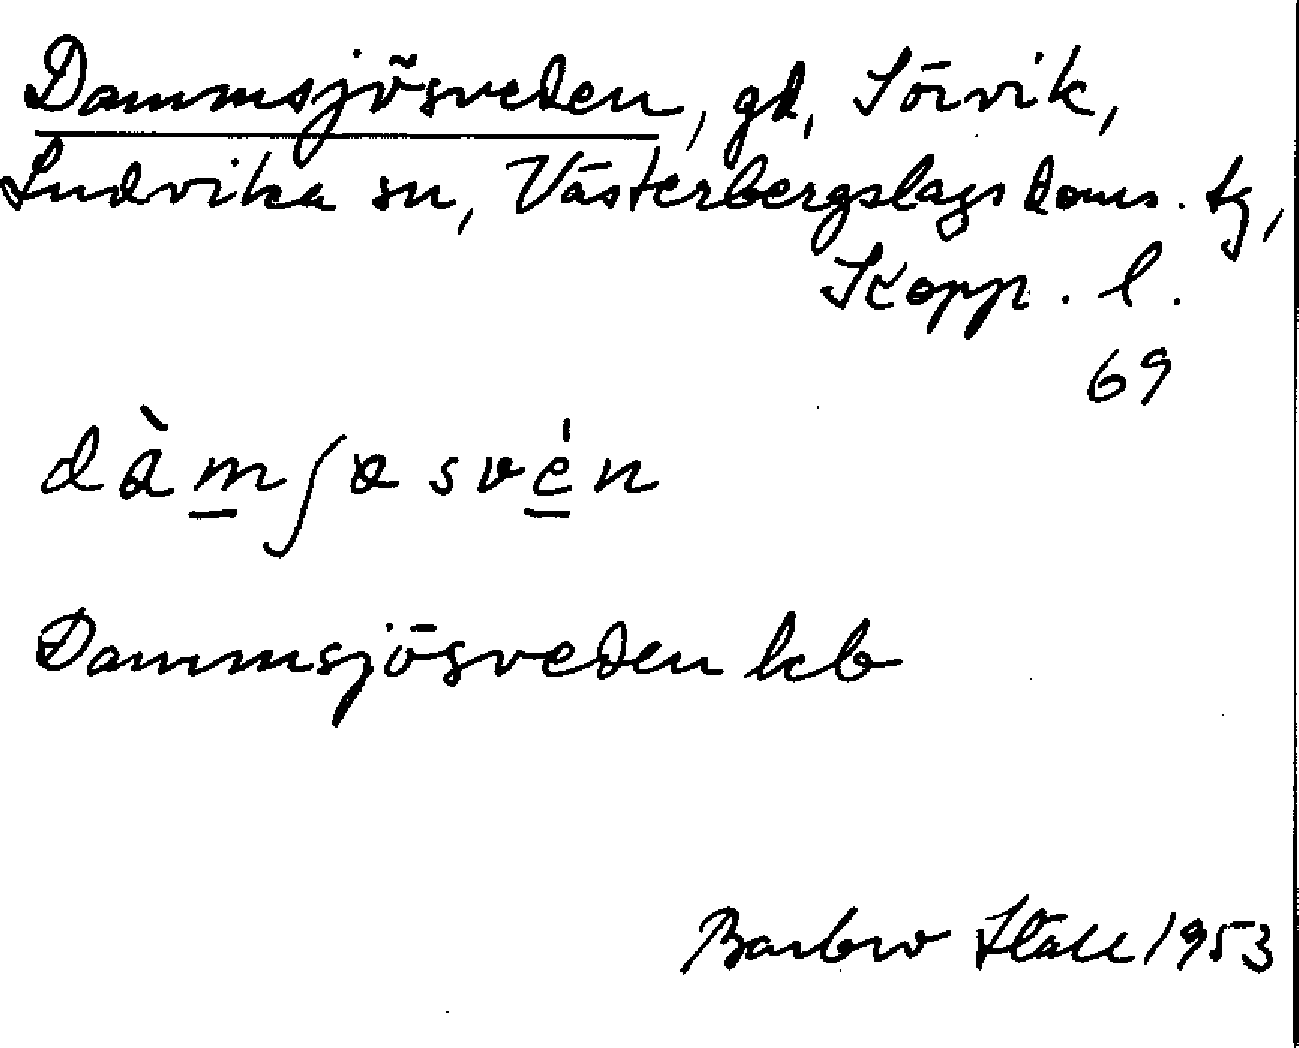 Dammsjösveden, gd, Sörvik,
Ludvika sn, Västerbergslags doms. tg,
Kopp. l.
69
dàm̲ʃɷsvé̲n
Dammsjösveden kb
Barbro Ståll 1953